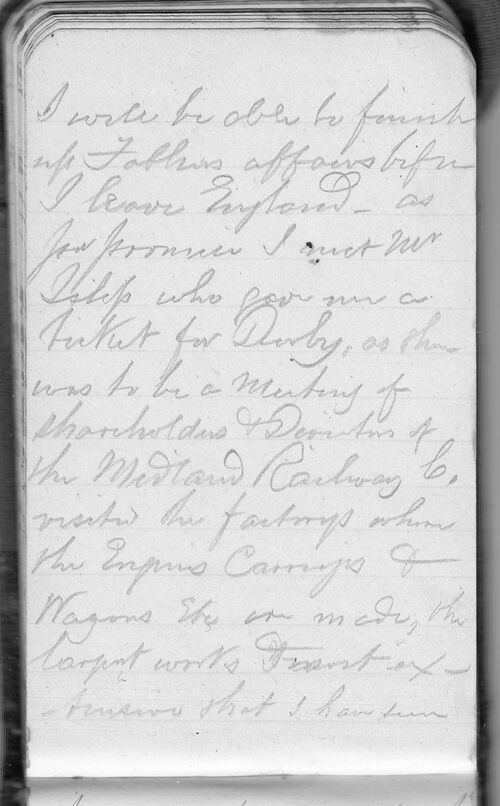 I will be able to finish
up Fathers affairs before
I leave England - as
per promise I met Mr
who gave me a
ticket for Derby, as there
was to be a Meeting of
shareholders & Directors of
the Midland Railway C.
visited the factorys where
the Engines Carriages &
Wagons Etc are made, the
largest works & most ex-
-tensive that I have seen